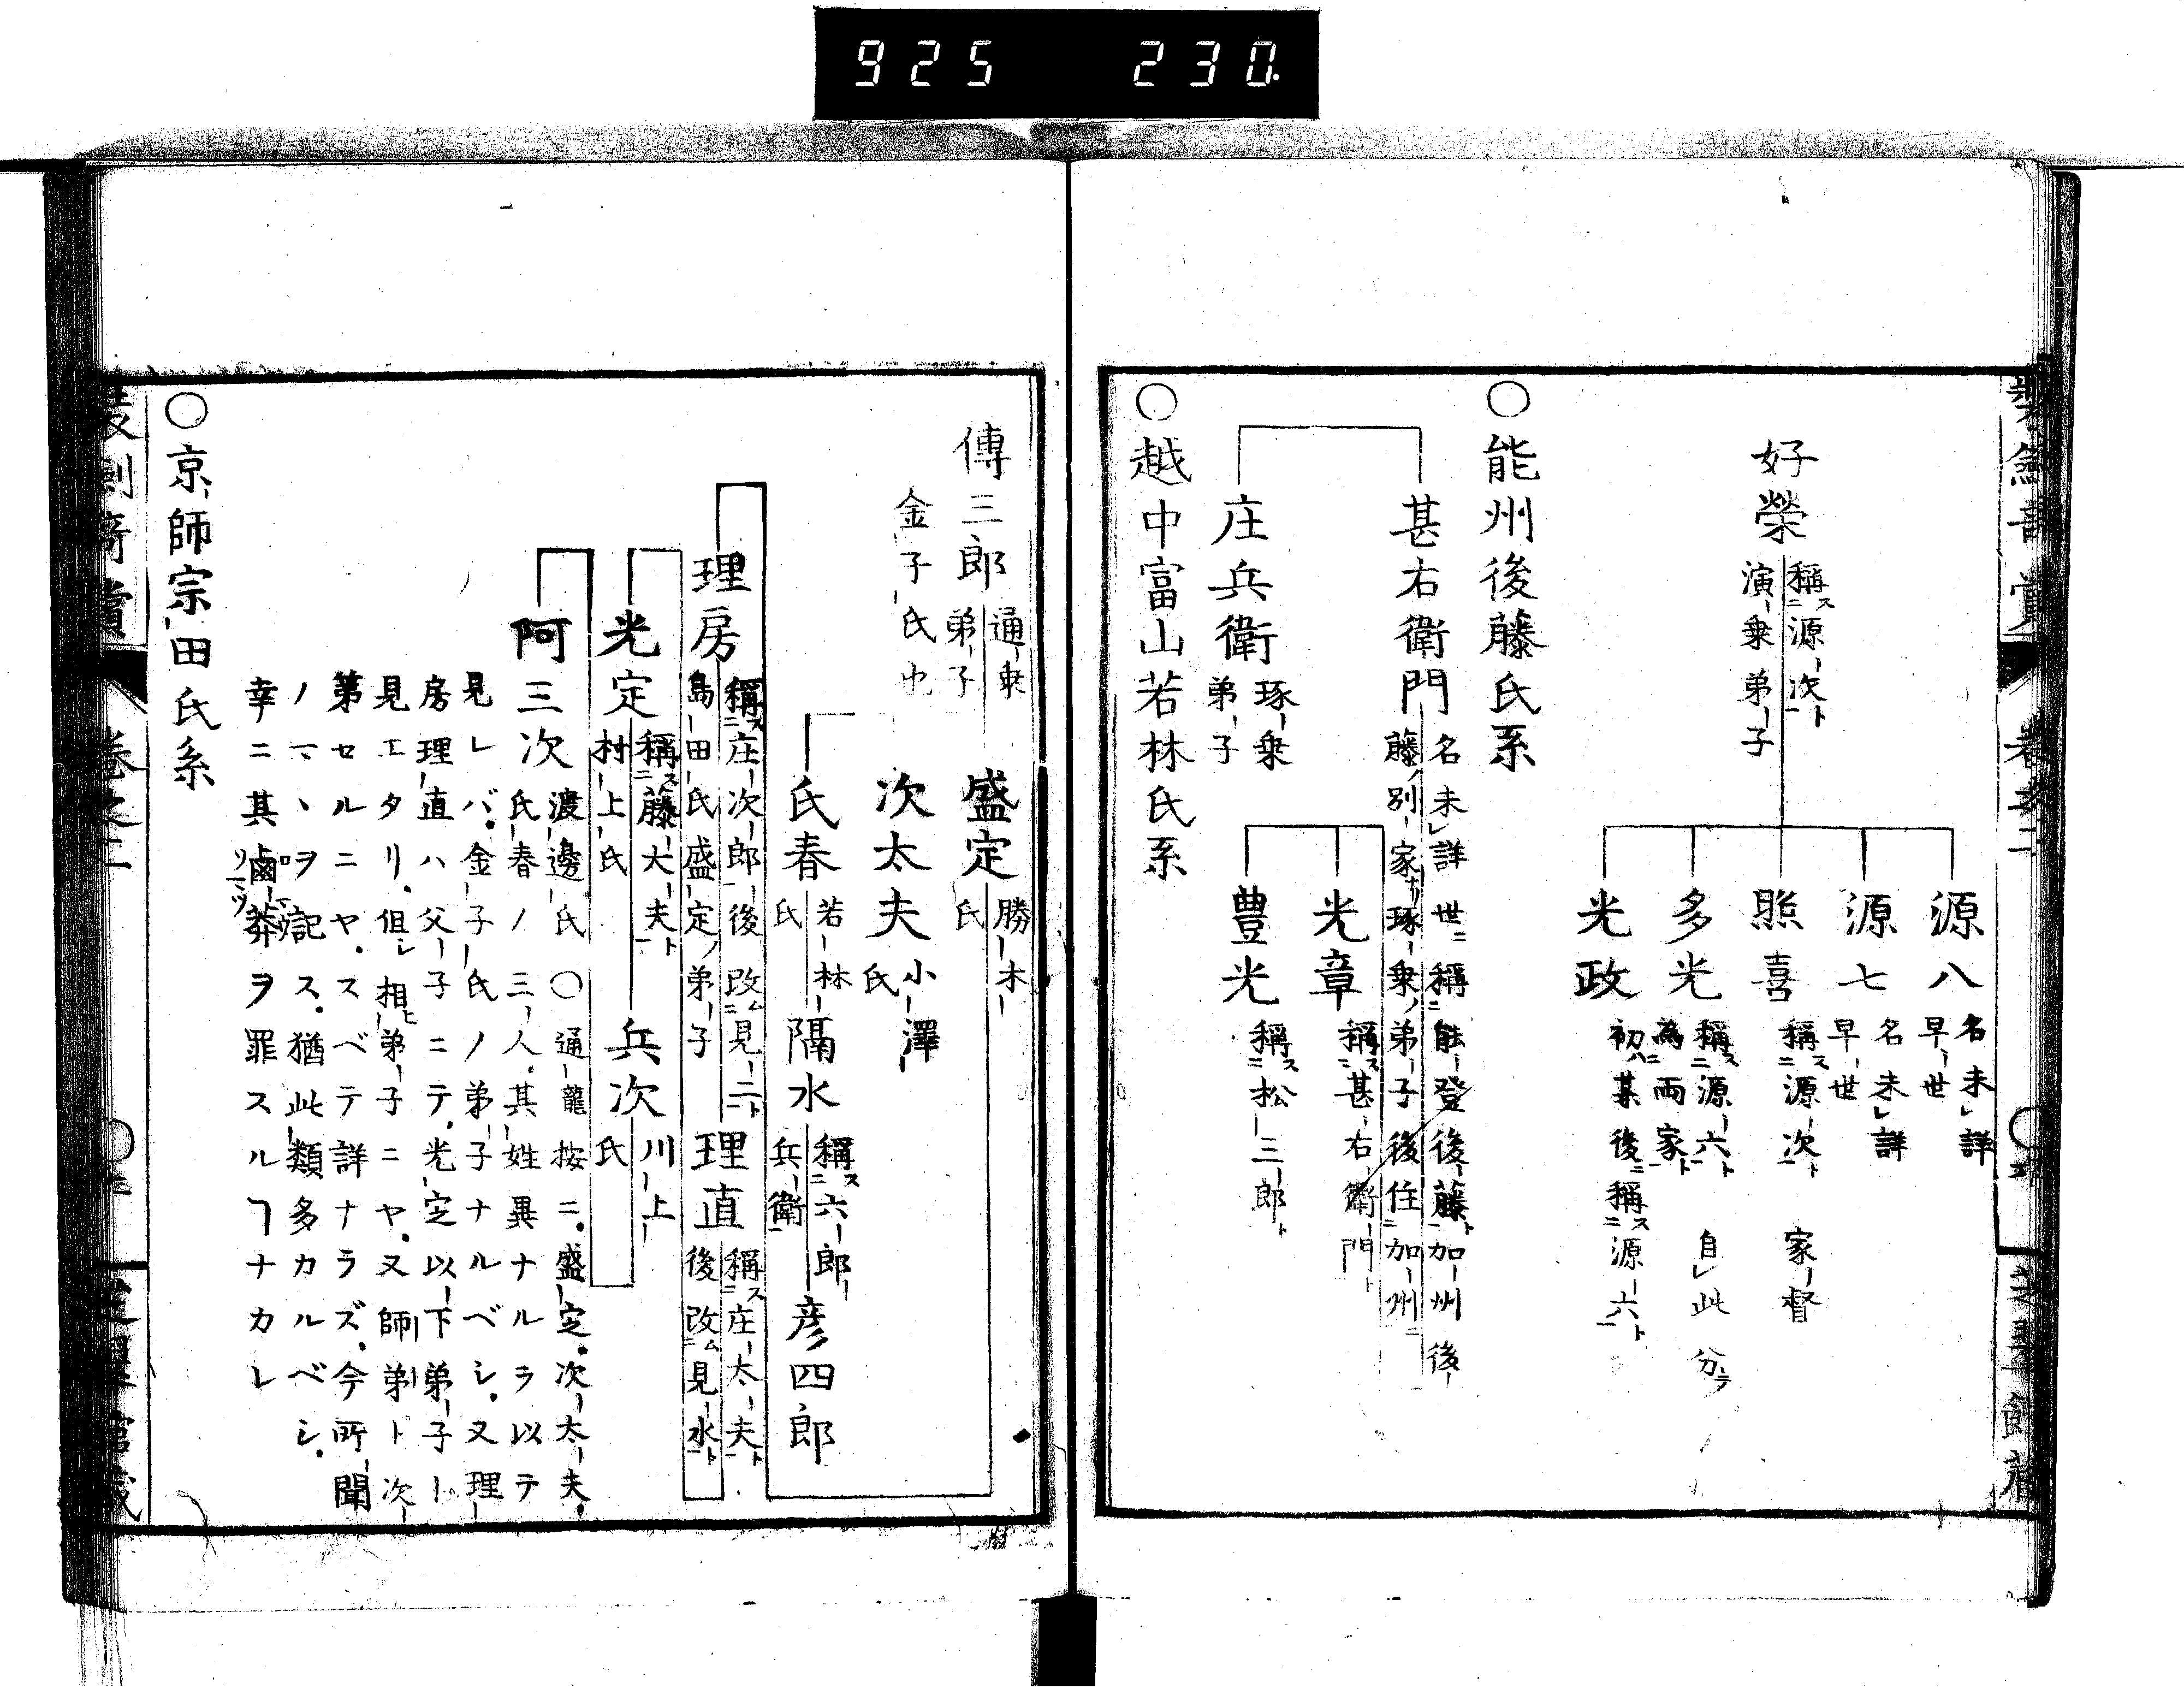 925 230
好榮 稱ス二源次ト一
演乗弟子
源八 名未レ詳
早世
源七 名未レ詳
早世
照喜 稱ス二源次ト一 家督
多光 稱ス二源六ト一 自レ此分テ
為二兩家ト一
光政 初ハ某後ニ稱ス二源六ト一
○能州後藤氏系
甚右衛門 名未レ詳世ニ稱二能登後藤ト一加州後
藤ノ別家ナリ琢乗ノ弟子後住二加州ニ一
光章 稱ス二甚右衛門ト一
豊光 稱ス二松三郎ト一
庄兵衛 琢乗
弟子
○越中富山若林氏系
傳三郎 通乗
弟子
金子氏也
盛定 勝木
氏
次太夫 小澤
氏
氏春 若林
氏
隔水 稱ス二六郎
兵衛一
彦四郎
理房 稱ス二庄次郎一後改ム二見二ト一
島田氏盛定ノ弟子
理直 稱ス二庄太夫ト一
後改ム二見水ト一
光定 稱ス二藤太夫ト一
村上氏
兵次 川上
氏
阿三次 渡邊氏 ○通龍按ニ盛定次太夫
氏春ノ三人其姓異ナルヲ以テ
見レバ金子氏ノ弟子ナルベシ又理
房理直ハ父子ニテ光定以下弟子
見エタリ但レ相ヒ弟子ニヤ又師弟ト次
第セルニヤスベテ詳ナラズ今所聞
ノマヽヲ記ス猶此類多カルベシ
幸ニ其鹵莽ヲ罪スルヿナカレ
○京師宗田氏系
卷之二